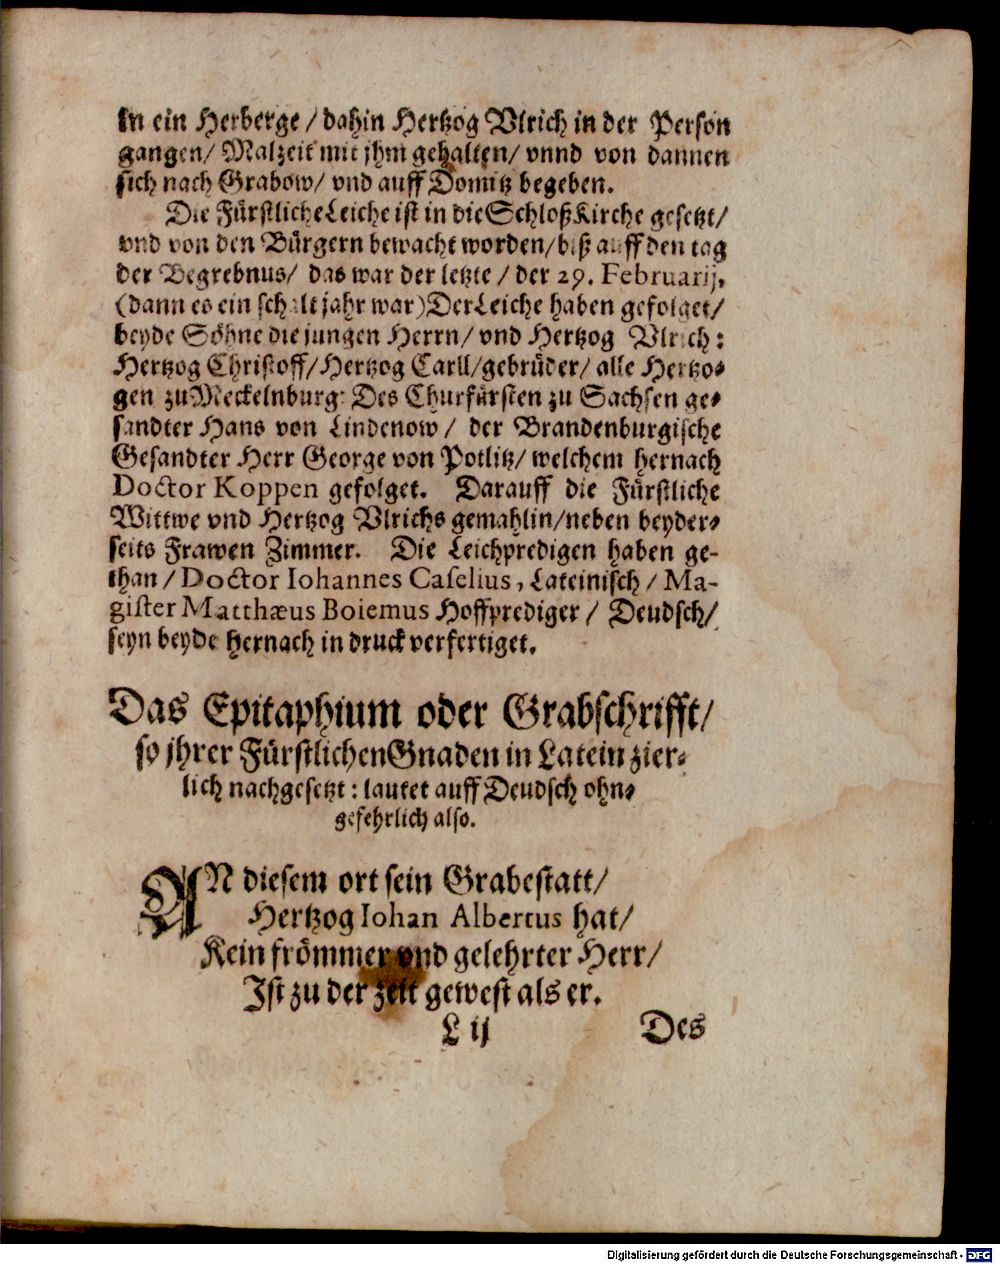 in ein Herberge / dahin Hertzog Vlrich in der Person
gangen/ Malzeit mit jhm gehalten/ vnnd von dannen
sich nach Grabow/ vnd auff Domitz begeben.
Die Fürstliche Leiche ist in die Schloß Kirche gesetzt/
vnd von den Bürgern bewacht worden/ biß auff den tag
der Begrebnus/ das war der letzte / der 29. Februarij,
(dann es ein schalt jahr war) Der Leiche haben gefolget/
beyde Söhne die jungen Herrn/ vnd Hertzog Vlrich:
Hertzog Christoff/ Hertzog Carll/ gebrüder/ alle Hertzo-
gen zu Meckelnburg: Des Churfürsten zu Sachsen ge-
sandter Hans von Lindenow / der Brandenburgische
Gesandter Herr George von Potlitz/ welchem hernach
Doctor Koppen gefolget. Darauff die Fürstliche
Wittwe vnd Hertzog Vlrichs gemahlin/ neben beyder-
seits Frawen Zimmer. Die Leichpredigen haben ge-
than / Doctor Iohannes Caselius, Lateinisch / Ma-
gister Matthæus Boiemus Hoffprediger / Deudsch/
seyn beyde hernach in druck verfertiget.
Das Epitaphium oder Grabschrifft/
so jhrer Fürstlichen Gnaden in Latein zier-
lich nachgesetzt: lautet auff Deudsch ohn-
gefehrlich also.
AN diesem ort sein Grabestatt/
Hertzog Iohan Albertus hat/
Kein frömmer vnd gelehrter Herr/
Ist zu der zeit gewest als er.
L ij Des
Digitalisierung gefördert durch die Deutsche Forschungsgemeinschaft - DFG